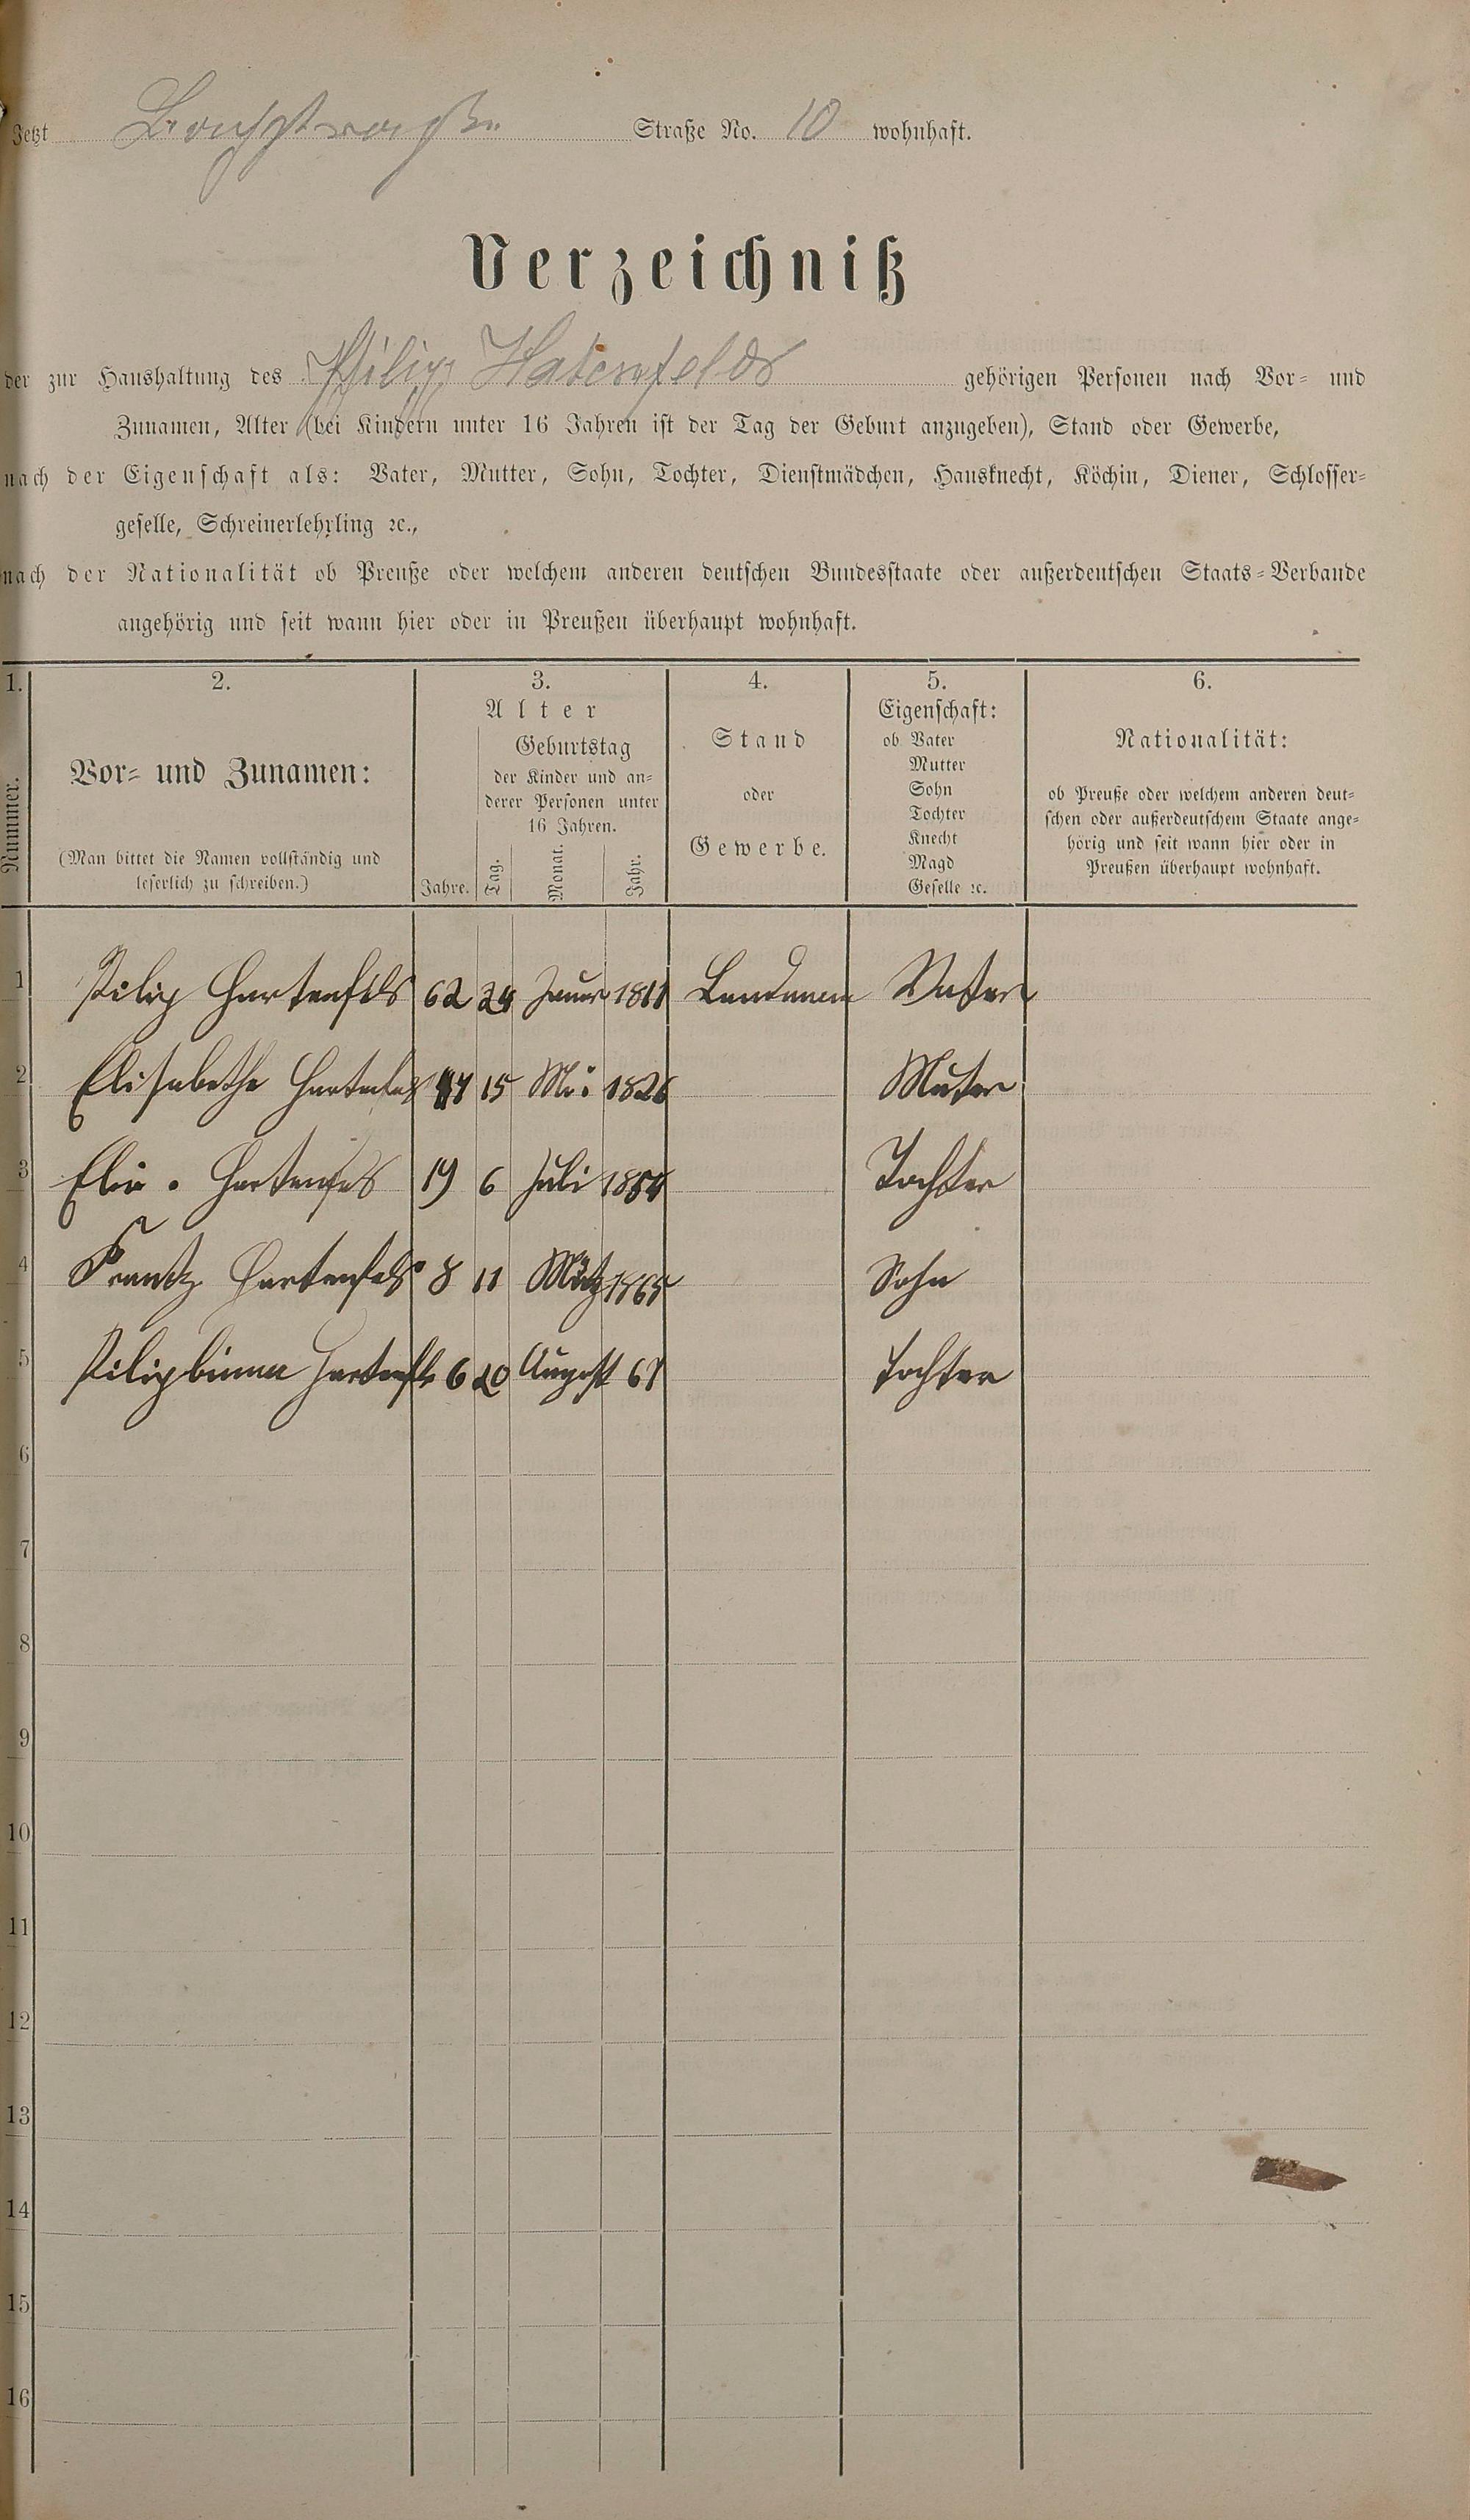 Jetzt Bachstraße Straße No. 10 wohnhaft.
Verzeichniß
der zur Haushaltung des Philipp Hatenfelds gehörigen Personen nach Vor- und
Zunamen, Alter (bei Kindern unter 16 Jahren ist der Tag der Geburt anzugeben), Stand oder Gewerbe,
nach der Eigenschaft als: Vater, Mutter, Sohn, Tochter, Dienstmädchen, Hausknecht, Köchin, Diener, Schlosser-
geselle, Schreinerlehrling ꝛc.,
nach der Nationalität ob Preuße oder welchem anderen deutschen Bundesstaate oder außerdeutschen Staats-Verbande
angehörig und seit wann hier oder in Preußen überhaupt wohnhaft.
1. 2. 3. 4. 5. 6.
Nummer.
Vor- und Zunamen:
(Man bittet die Namen vollständig und
leserlich zu schreiben.)
Alter
Geburtstag
der Kinder und an-
derer Personen unter
16 Jahren.
Jahre. Tag. Monat. Jahr.
Stand
oder
Gewerbe.
Eigenschaft:
ob Vater
Mutter
Sohn
Tochter
Knecht
Magd
Geselle ꝛc.
Nationalität:
ob Preuße oder welchem anderen deut-
schen oder außerdeutschem Staate ange-
hörig und seit wann hier oder in
Preußen überhaupt wohnhaft.
1 Pilip Hartenfels 62 24 Januar 1811 Landmann Vater
2 Elisabethe Hartenfels 47 15 Mai 1826 Muter
3 Hartenfels 19 6 Juli 1854 Tochter
4 Frantz Hartenfels 8 11 Mätz 1865 Sohn
5 Pilipbinna Hartenfls 6 20 August 67 Tochter
6
7
8
9
10
11
12
13
14
15
16